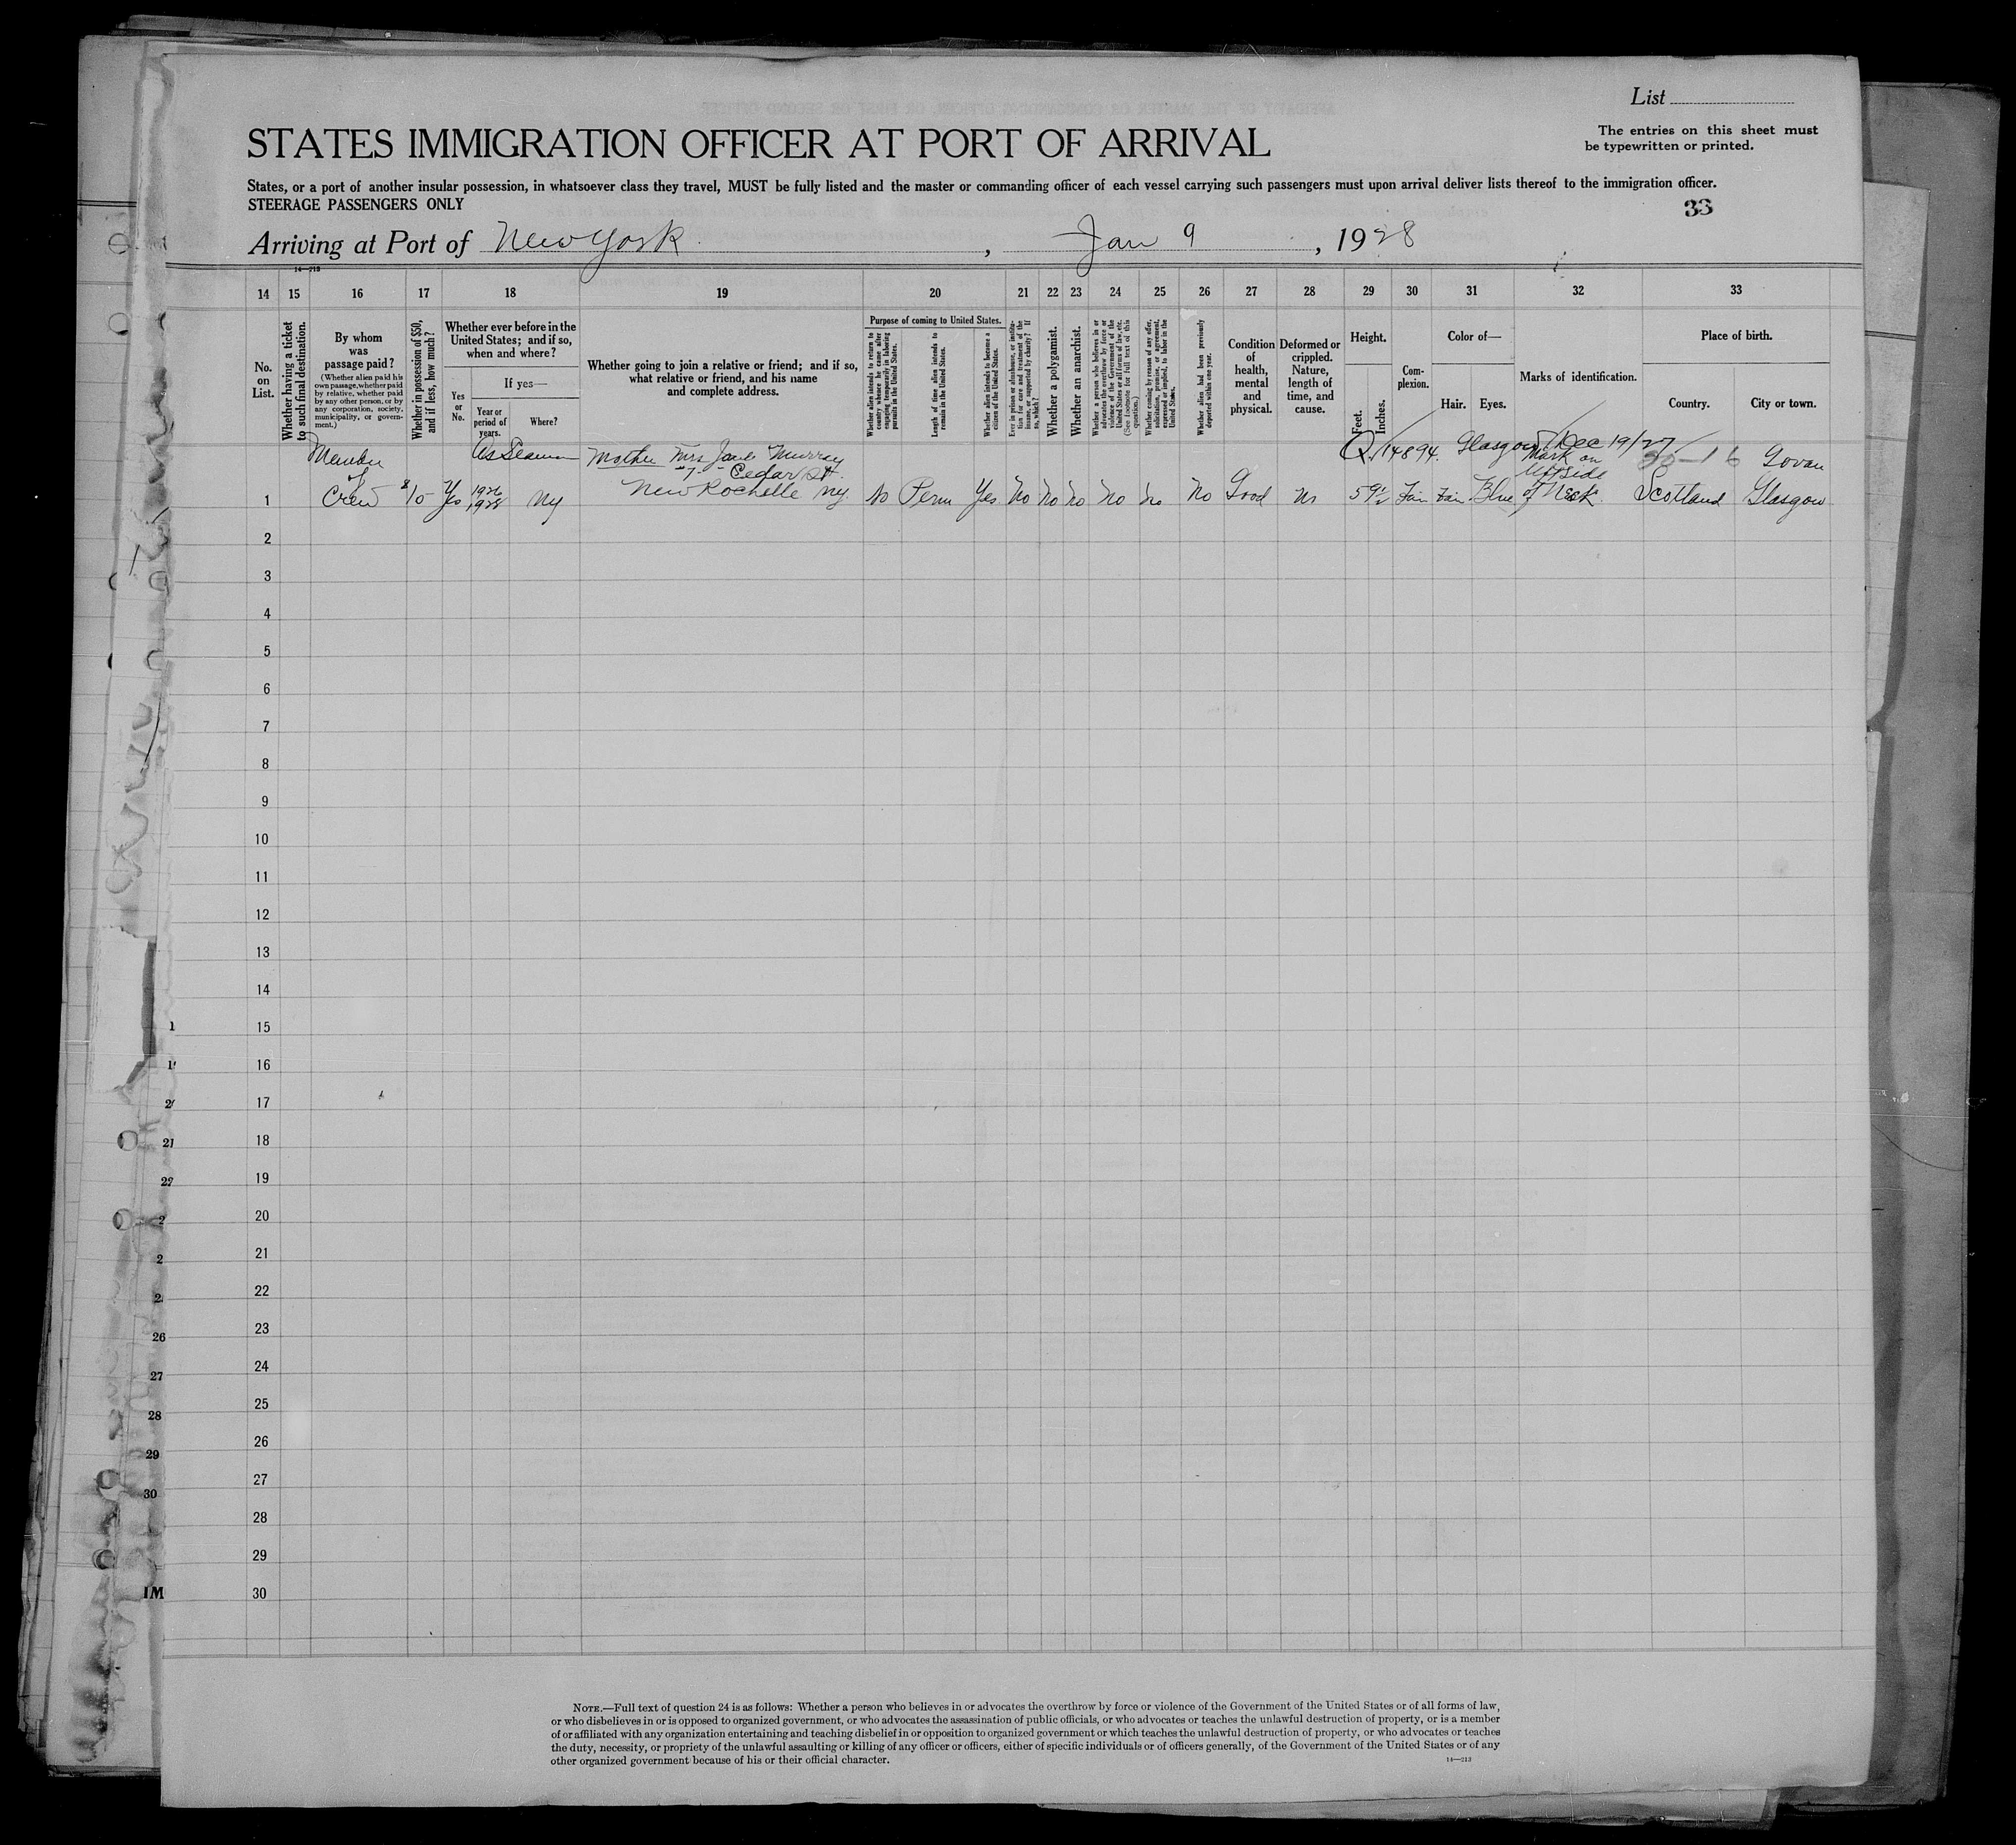 List
STATES IMMIGRATION OFFICER AT PORT OF ARRIVAL
The entries on this sheet must
be typewritten or printed.
States, or a port of another insular possession, in whatsoever class they travel, MUST be fully listed and the master or commanding officer of each vessel carrying such passengers must upon arrival deliver lists thereof to the immigration officer.
STEERAGE PASSENGERS ONLY
33
Arriving at Port of New York, Jan 9, 1928
14—213
14 15 16 17 18 19 20 21 22 23 24 25 26 27 28 29 30 31 32 33
No. on List.
Whether having a ticket to such final destination.
By whom was passage paid?
(Whether alien paid his own passage, whether paid by relative, whether paid by any other person, or by any corporation, society, municipality, or government.)
Whether in possession of $50, and if less, how much?
Whether ever before in the United States; and if so, when and where?
Yes or No.
If yes—
Year or period of years.
Where?
Whether going to join a relative or friend; and if so, what relative or friend, and his name and complete address.
Purpose of coming to United States.
Whether alien intends to return to country whence he came after engaging temporarily in laboring pursuits in the United States.
Length of time alien intends to remain in the United States.
Whether alien intends to become a citizen of the United States.
Ever in prison or almshouse, or institution for care and treatment of the insane, or supported by charity? If so, which?
Whether a polygamist.
Whether an anarchist.
Whether a person who believes in or advocates the overthrow by force or violence of the Government of the United States or all forms of law, etc. (See footnote for full text of this question.)
Whether coming by reason of any offer, solicitation, promise, or agreement, expressed or implied, to labor in the United States.
Whether alien had been previously deported within one year.
Condition of health, mental and physical.
Deformed or crippled. Nature, length of time, and cause.
Height.
Feet. Inches.
Complexion.
Color of—
Hair. Eyes.
Marks of identification.
Place of birth.
Country. City or town.
Member As Seaman Mother Mrs Jane Murray Q/14894 Glasgow Dec 19/27
of 7 Cedar St Mark on left side Govan
1 Crew Yes 1926 1928 NY New Rochelle NY. No Perm Yes No No No No No No Good No 5 9½ Fair Fair Blue of Neck Scotland Glasgow
2
3
4
5
6
7
8
9
10
11
12
13
14
15
16
17
18
19
20
21
22
23
24
25
26
27
28
29
30
21
26
27
28
29
30
NOTE.—Full text of question 24 is as follows: Whether a person who believes in or advocates the overthrow by force or violence of the Government of the United States or of all forms of law,
or who disbelieves in or is opposed to organized government, or who advocates the assassination of public officials, or who advocates or teaches the unlawful destruction of property, or is a member
of or affiliated with any organization entertaining and teaching disbelief in or opposition to organized government or which teaches the unlawful destruction of property, or who advocates or teaches
the duty, necessity, or propriety of the unlawful assaulting or killing of any officer or officers, either of specific individuals or of officers generally, of the Government of the United States or of any
other organized government because of his or their official character.
14—213